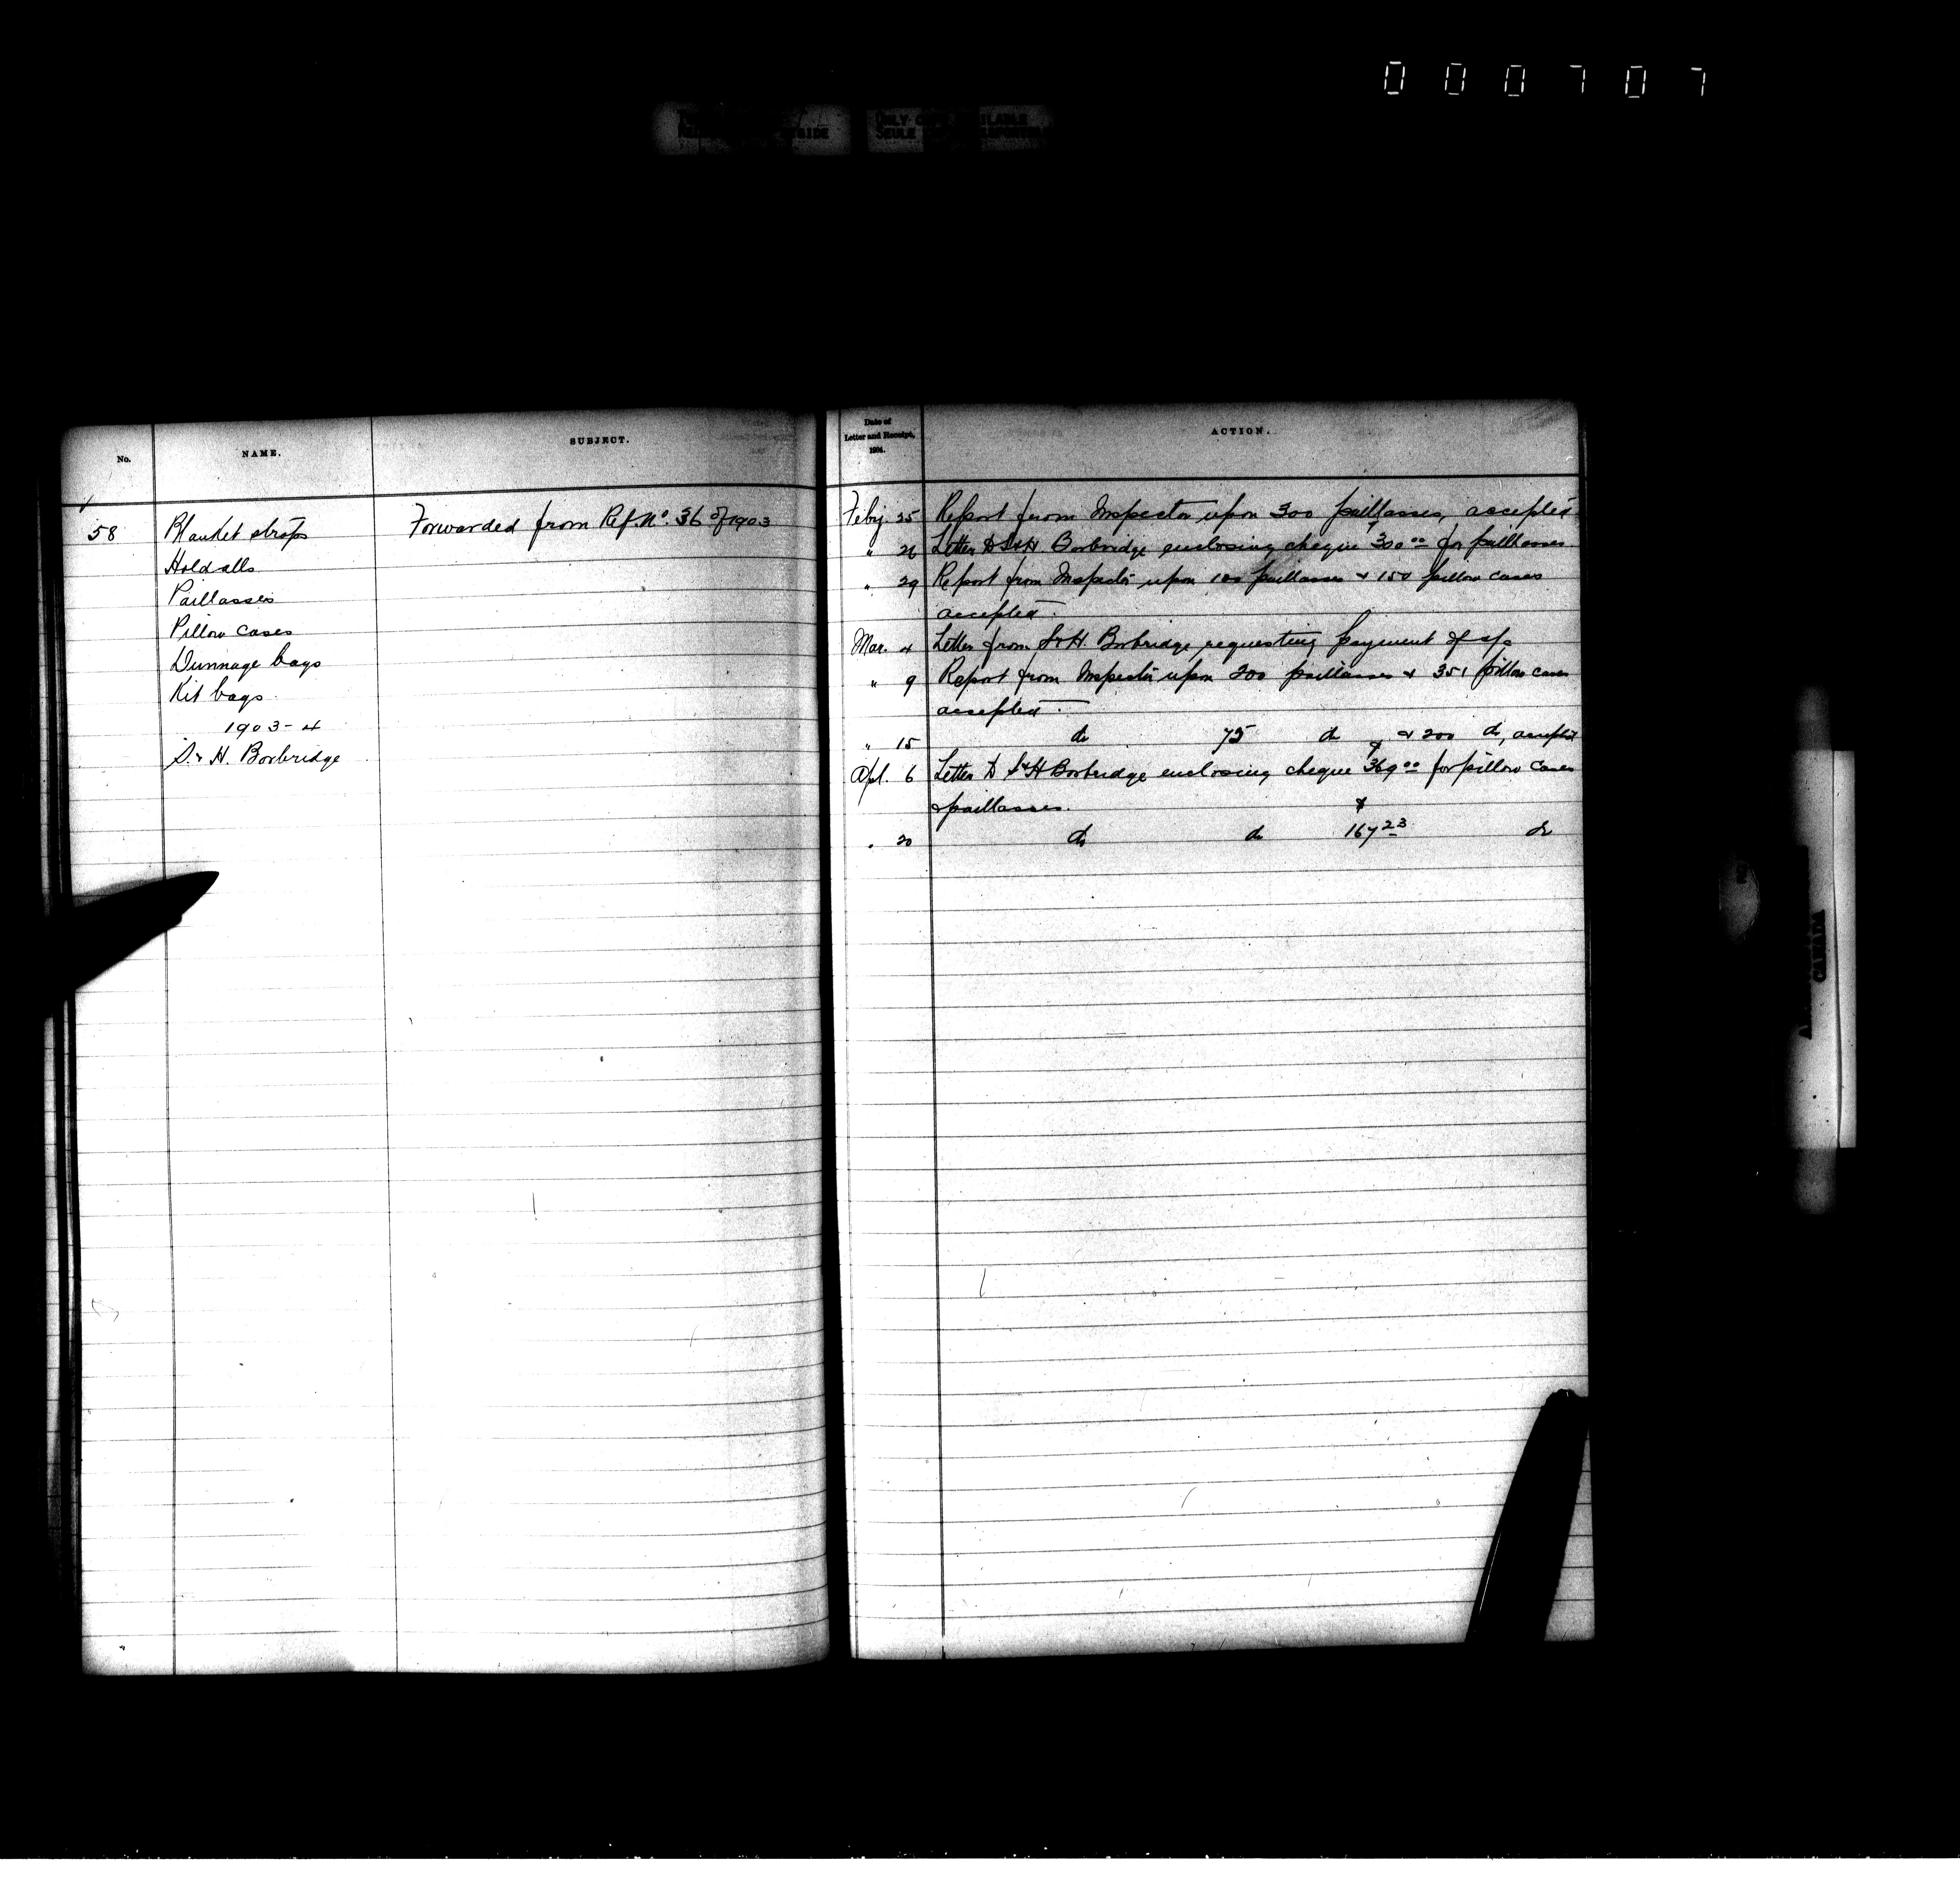 000707
ONLY COPY AVAILABLE
SEULE
No.
NAME.
SUBJECT.
58
Blanket straps
Forwarded from Ref. No. 36 of 1903
Holdalls
Paillasses
Pillow cases
Dunnage bags
Kit bags
1903-4
S. & H. Borbridge
Date of
Letter and Receipt,
1904.
ACTION.
Feby. 25 Report from Inspector upon 300 paillasses, accepted
" 26 Letter to S & H Borbridge enclosing cheque $300 00 for paillasses
" 29 Report from Inspector upon 100 paillasses & 150 pillow cases
accepted.
Mar. 4 Letter from S & H. Borbridge requesting payment of a/c
" 9 Report from Inspector upon 200 paillasses & 351 pillow cases
accepted.
" 15 do 75 do & 200 do, accepted
Apl. 6 Letter to S & H Borbridge enclosing cheque $369 00 for pillow cases
& paillasses.
" 20 do do $167 23 do
CANADA